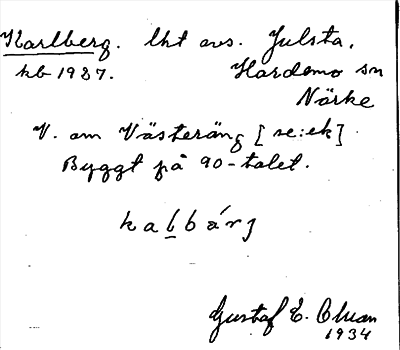 Karlberg. lht avs. Julsta,
kb 1927. Hardemo sn
Närke
V. om Västeräng [se: ek]
Byggt på 90-talet.
kabbärj
Gustaf E.
1934